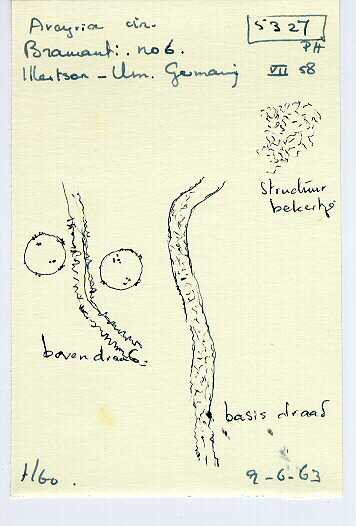 Arcyria cin.
Bramanti. no 6.
5327
PH
Um. Germany VII 58
structuur
bekertje
bovendraad.
basis draad
H/60.
9-6-63